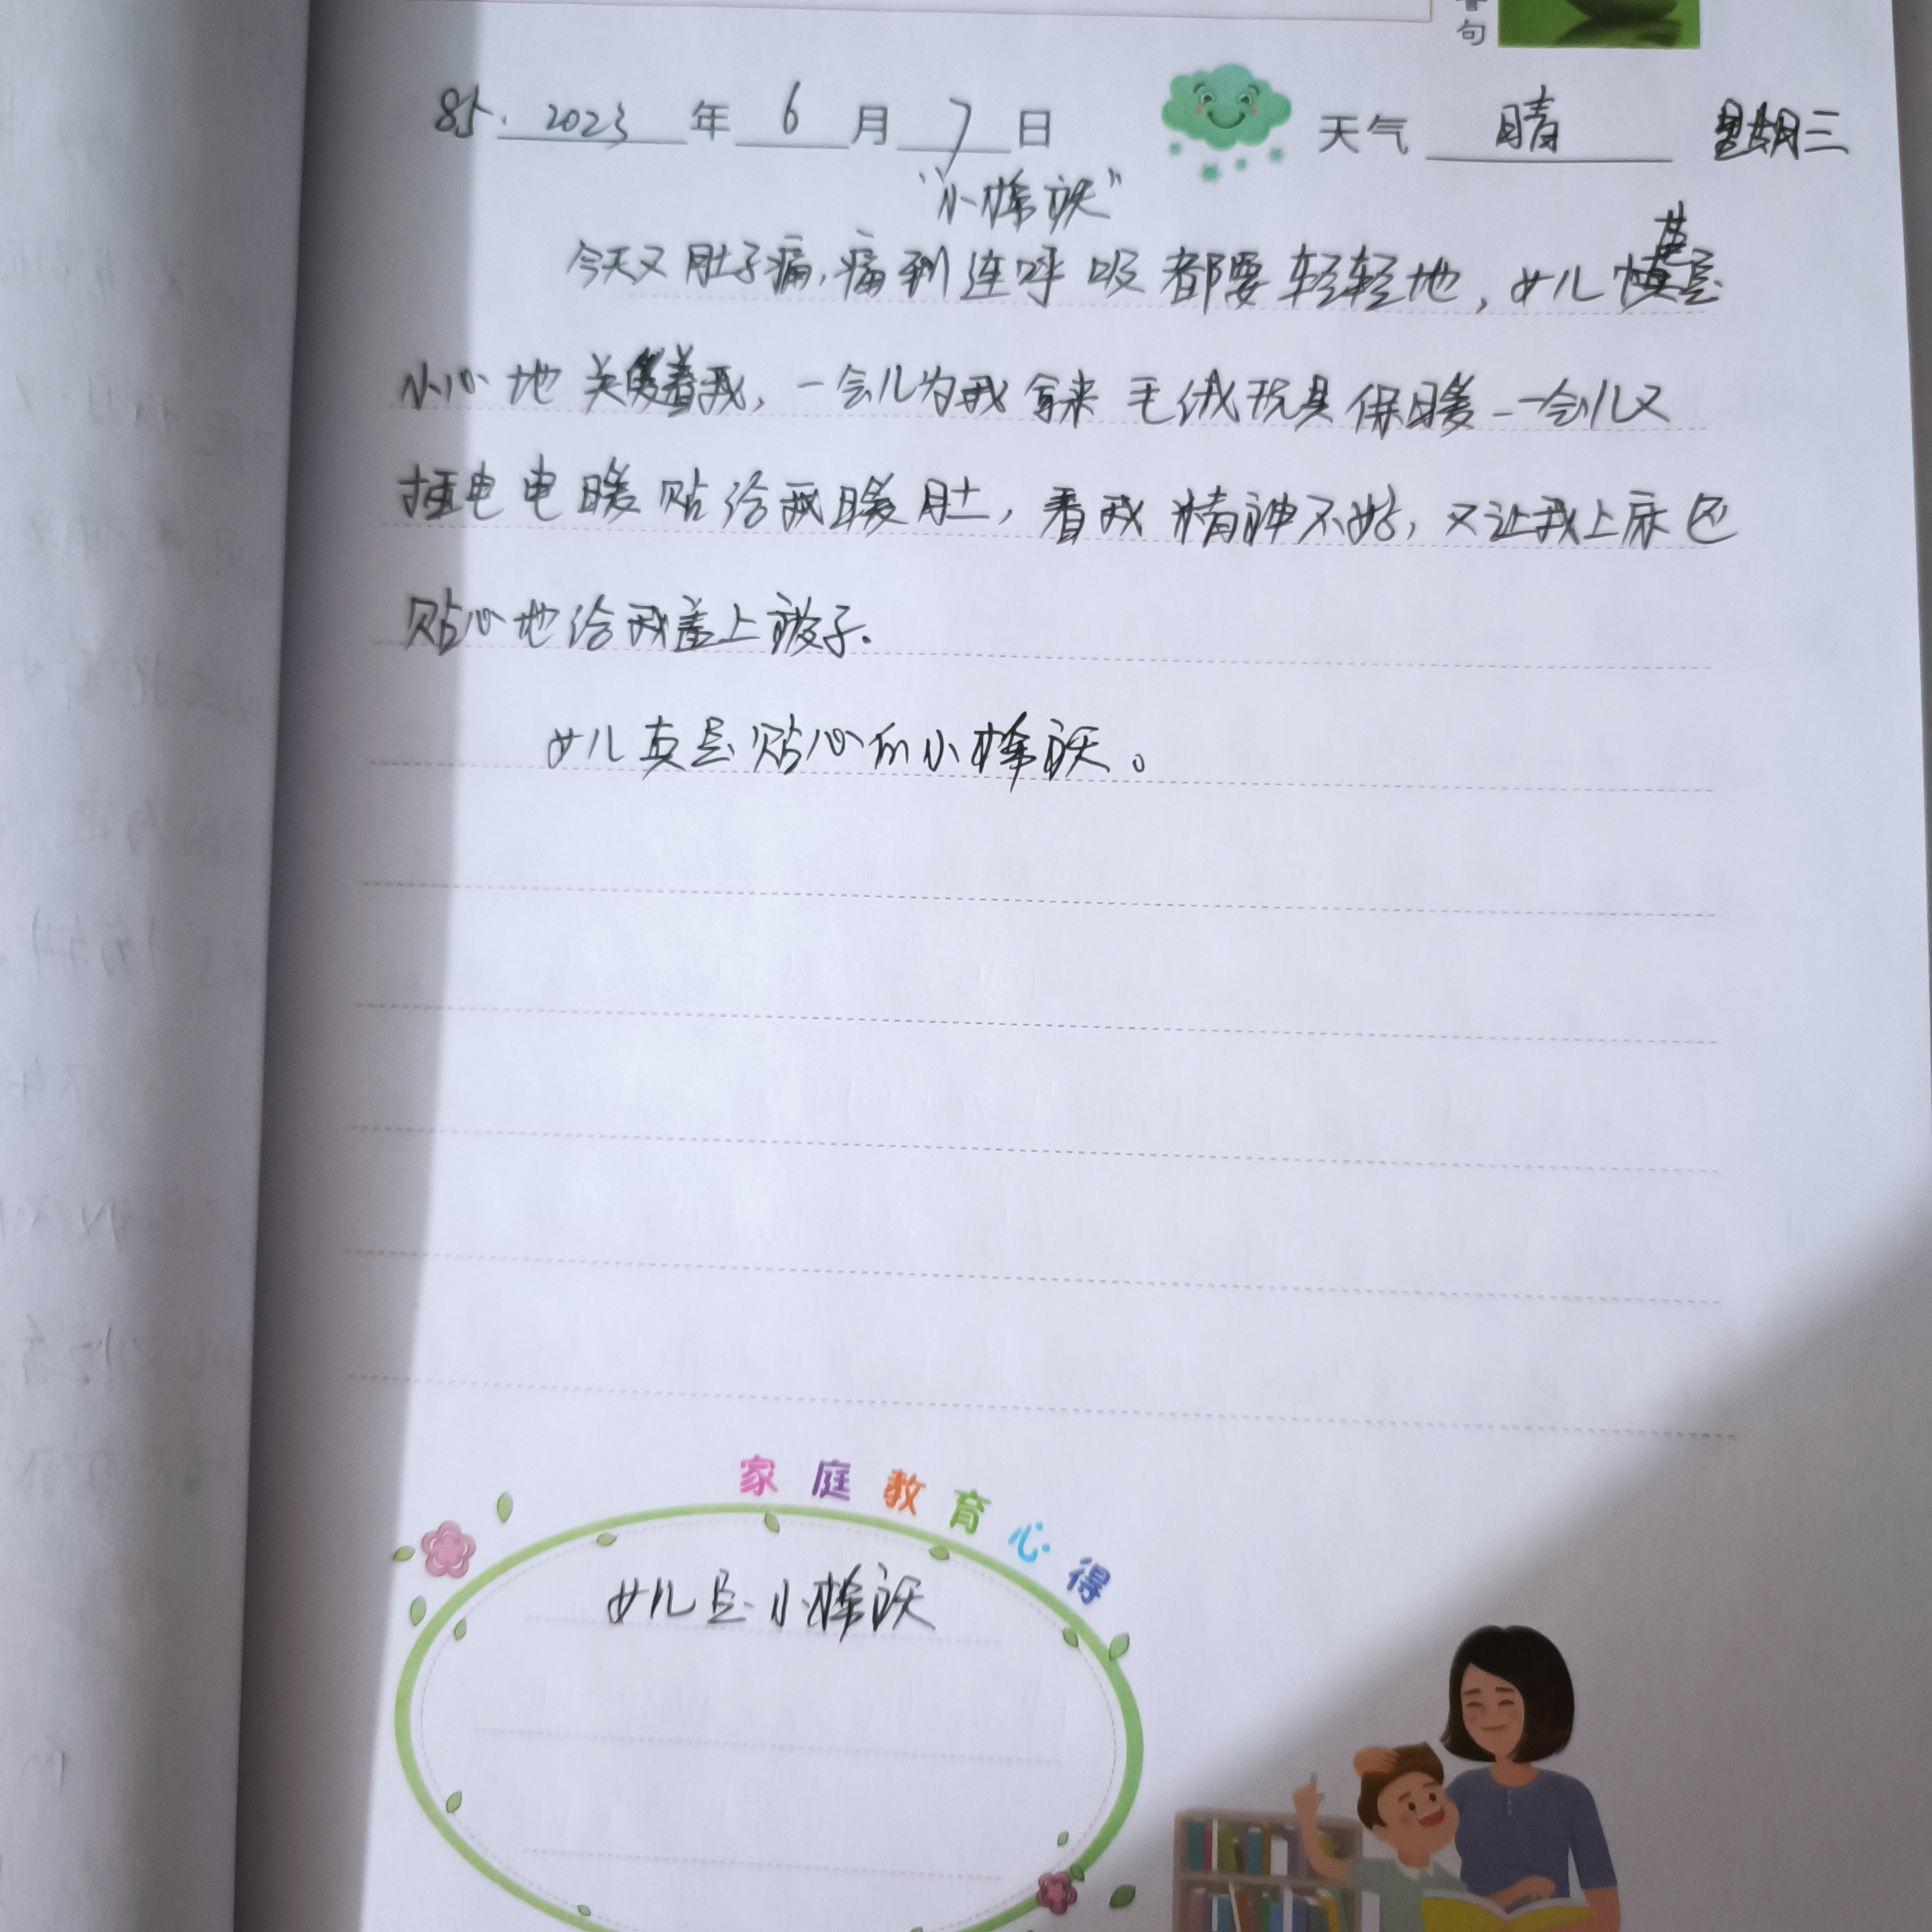 句
85. 2023 年 6 月 7 日 天气 晴 星期三
“小棉袄”
今天又肚子痛,痛到连呼吸都要轻轻地,女儿甚是
小心地关着我,一会儿为我拿来毛绒玩具保暖一会儿又
插电电暖贴给我暖肚,看我精神不好,又让我上床
贴心地给我盖上被子.
女儿真是贴心的小棉袄。
家庭教育心得
女儿是小棉袄